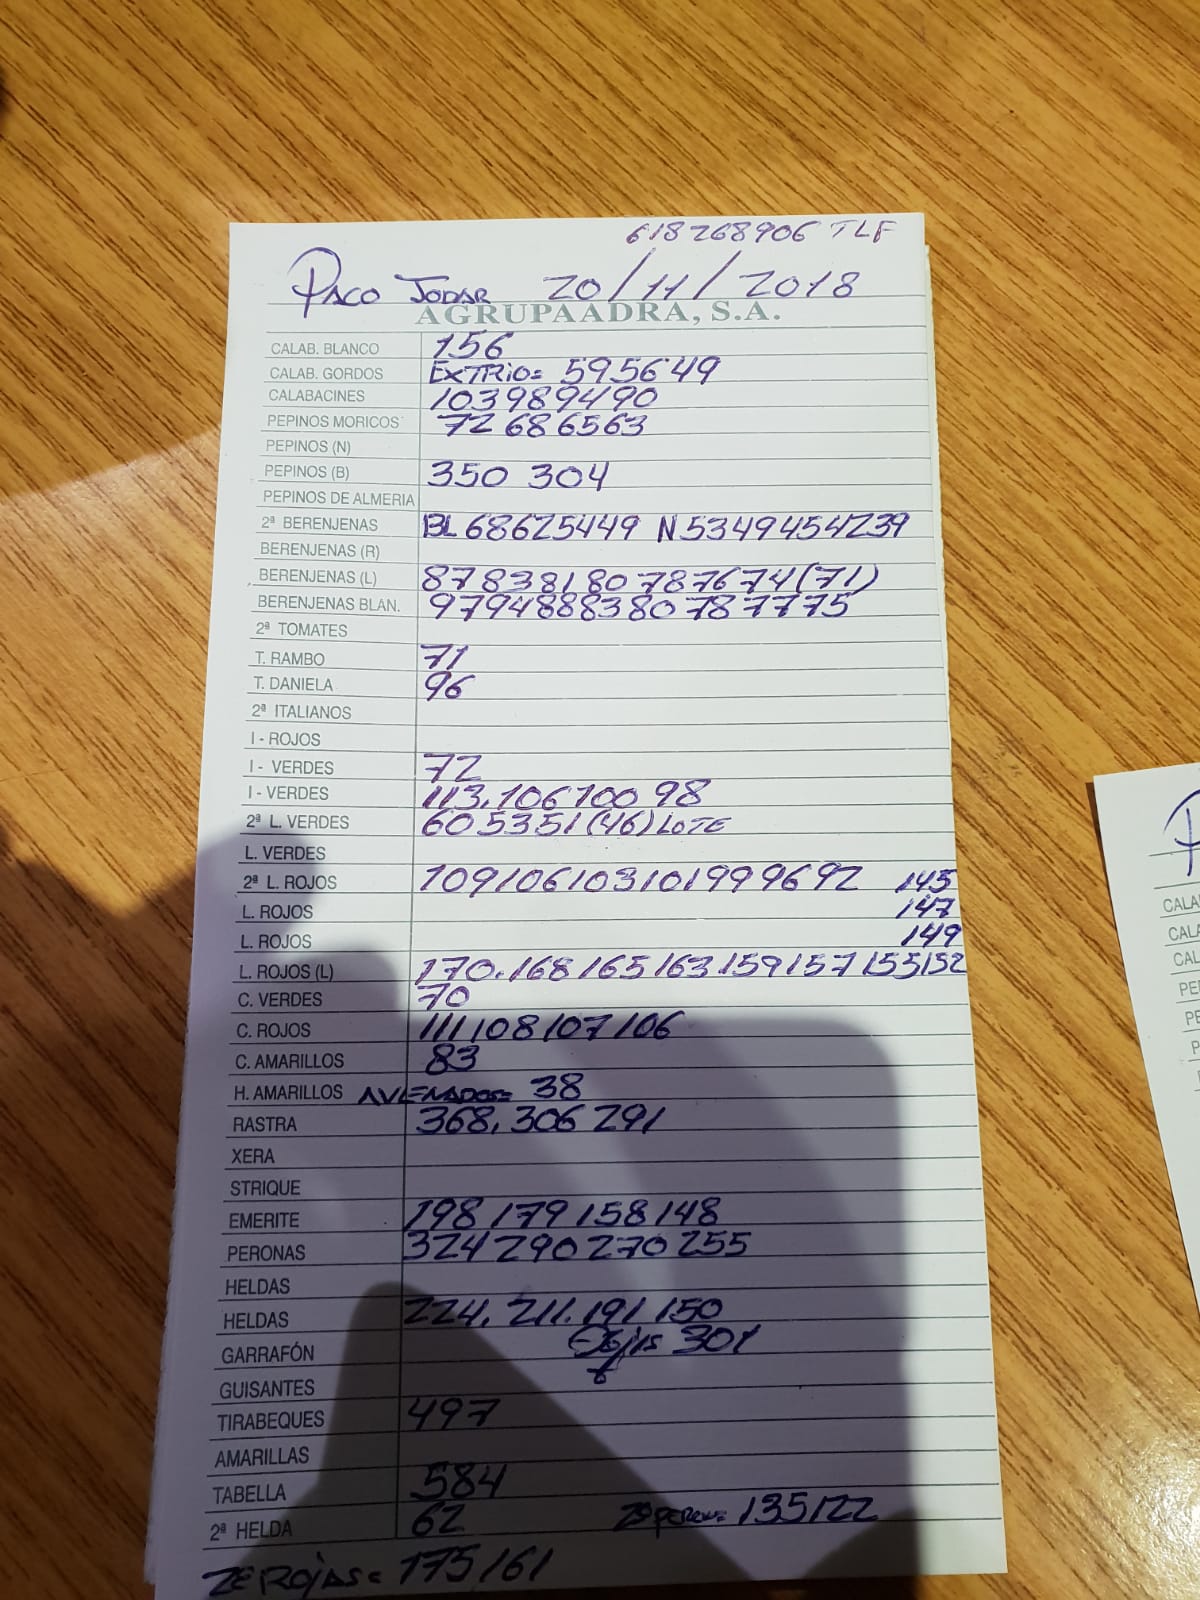 618268906 TLF
PACO JODAR 20/11/2018
AGRUPAADRA, S.A.
CALAB. BLANCO 156
CALAB. GORDOS EXTRIO= 595649
CALABACINES 103989490
PEPINOS MORICOS 72686563
PEPINOS (N)
PEPINOS (B) 350 304
PEPINOS DE ALMERIA
2ª BERENJENAS BL 68625449 N 5349454239
BERENJENAS (R)
BERENJENAS (L) 87838180787674(71)
BERENJENAS BLAN. 9794888380787775
2ª TOMATES
T. RAMBO 71
T. DANIELA 96
2ª ITALIANOS
I - ROJOS
I - VERDES 72
I - VERDES 113.106100 98
2ª L. VERDES 605351(46)LOTE
L. VERDES
2ª L. ROJOS 109106103101999692 145
L. ROJOS 147
L. ROJOS 149
L. ROJOS (L) 170.168165163159157155152
C. VERDES 70
C. ROJOS 111108107106
C. AMARILLOS 83
H. AMARILLOS 38
RASTRA 368.306 291
XERA
STRIQUE
EMERITE 198179158148
PERONAS 324290270255
HELDAS
HELDAS 224.211.191.150
GARRAFÓN 301
GUISANTES
TIRABEQUES 497
AMARILLAS
TABELLA 584
2ª HELDA 62 135122
ROJAS= 175161
CALA
CALA
CAL
PE
PE
P